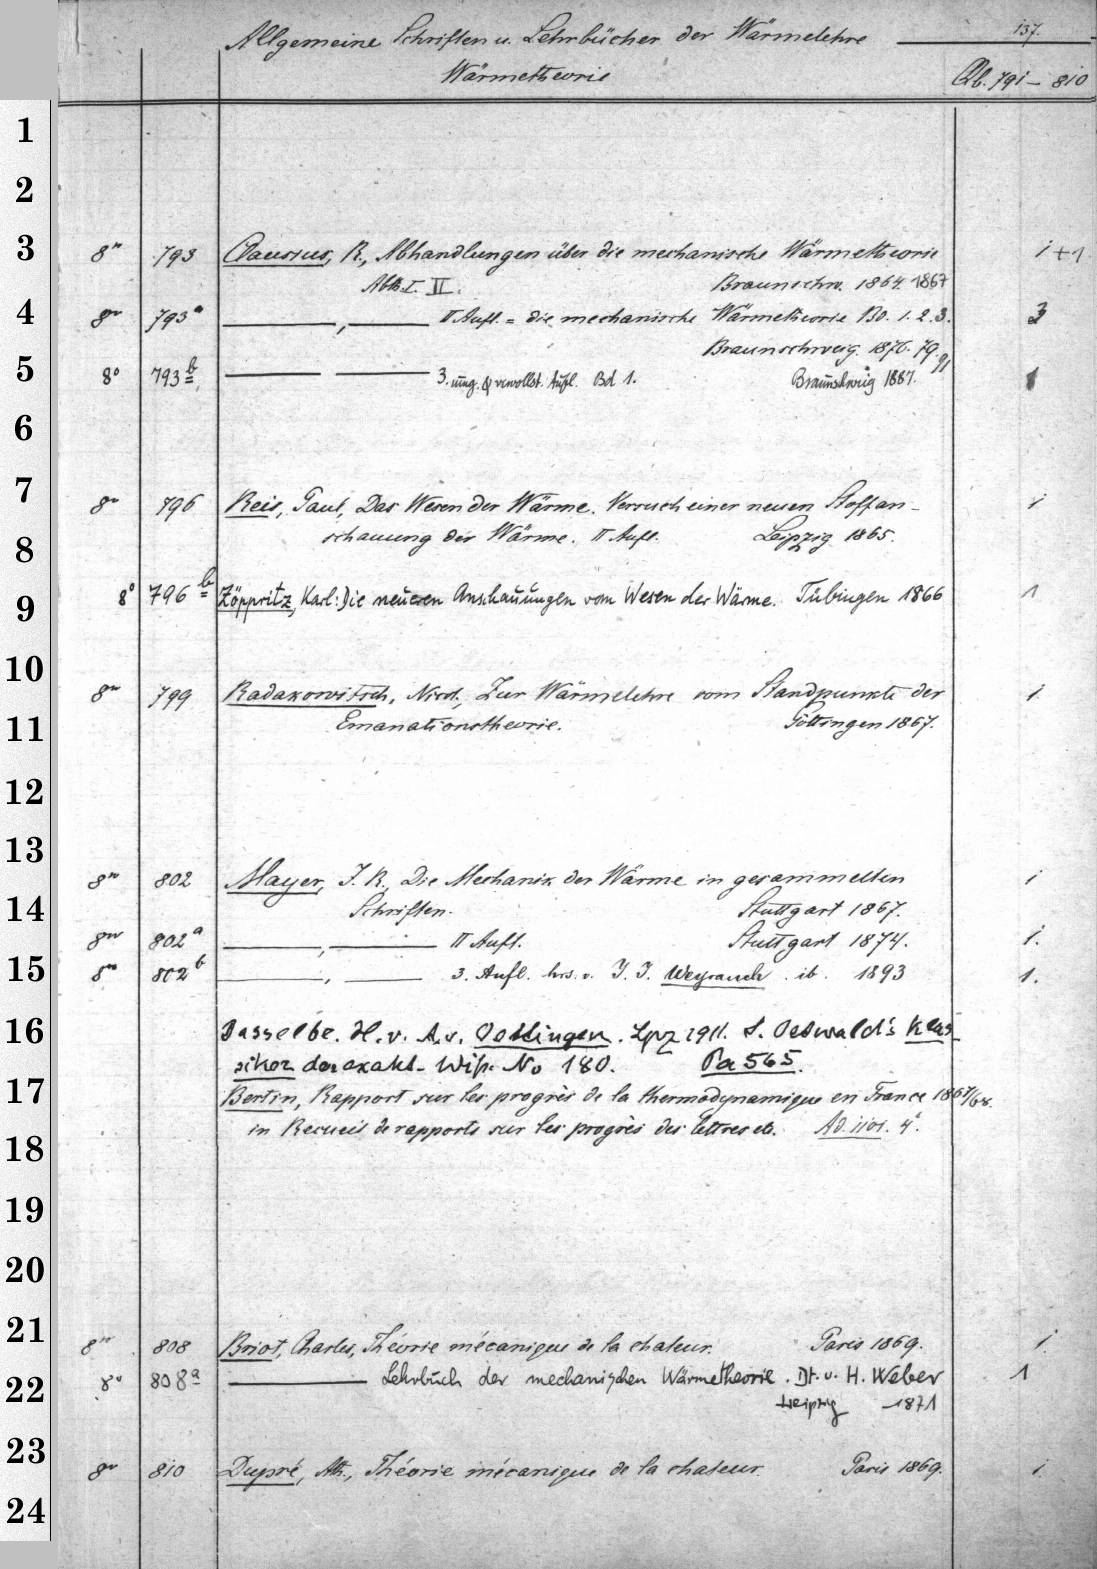 137.
Allgemeine Schriften u. Lehrbücher der Wärmelehre
Wärmetheorie
Qb. 791 – 810
1
2
3
8° 793 Clausius, R., Abhandlungen über die mechanische Wärmetheorie 1+1
Abth. I. II. Braunschw. 1864. 1867
4
8° 793a ———, ——— II Aufl. = die mechanische Wärmetheorie Bd. 1. 2. 3. 3
Braunschweig. 1876. 79. 91
5
8° 793b ——— ——— 3. umg. & vervollst. Aufl. Bd 1. Braunschweig 1887. 1
6
7
8° 796 Reis, Paul, Das Wesen der Wärme. Versuch einer neuen Stoffan- 1
8
schauung der Wärme. II Aufl. Leipzig 1865.
9
8° 796b Zöppritz, Karl: Die neueren Anschauungen vom Wesen der Wärme. Tübingen 1866 1
10
8° 799 Radakowitsch, Zur Wärmelehre vom Standpunkte der 1
11
Emanationstheorie. Göttingen 1867.
12
13
8° 802 Mayer, J. R., Die Mechanik der Wärme in gesammelten 1
14
Schriften. Stuttgart 1867.
8° 802a ———, ——— II Aufl. Stuttgart 1874. 1.
15
8° 802b ———, ——— 3. Aufl. hrs. v. J. J. Weyrauch. ib. 1893 1.
16
Dasselbe. H. v. A. v. Oettingen. Lpz 1911. S. Ostwald's Klas-
siker der exakt. Wiss. No 180. Pa 565.
17
Bertin, Rapport sur les progrès de la thermodynamique en France 1867/68.
18
in Recueil de rapports sur les progrès des lettres etc. Ad. 1101. 4°.
19
20
21
8° 808 Briot, Charles, Théorie mécanique de la chaleur. Paris 1869. 1
22
8° 808a ——— Lehrbuch der mechanischen Wärmetheorie. Dt. v. H. Weber 1
Leipzig 1871
23
8° 810 Dupré, Ath., Théorie mécanique de la chaleur. Paris 1869. 1
24